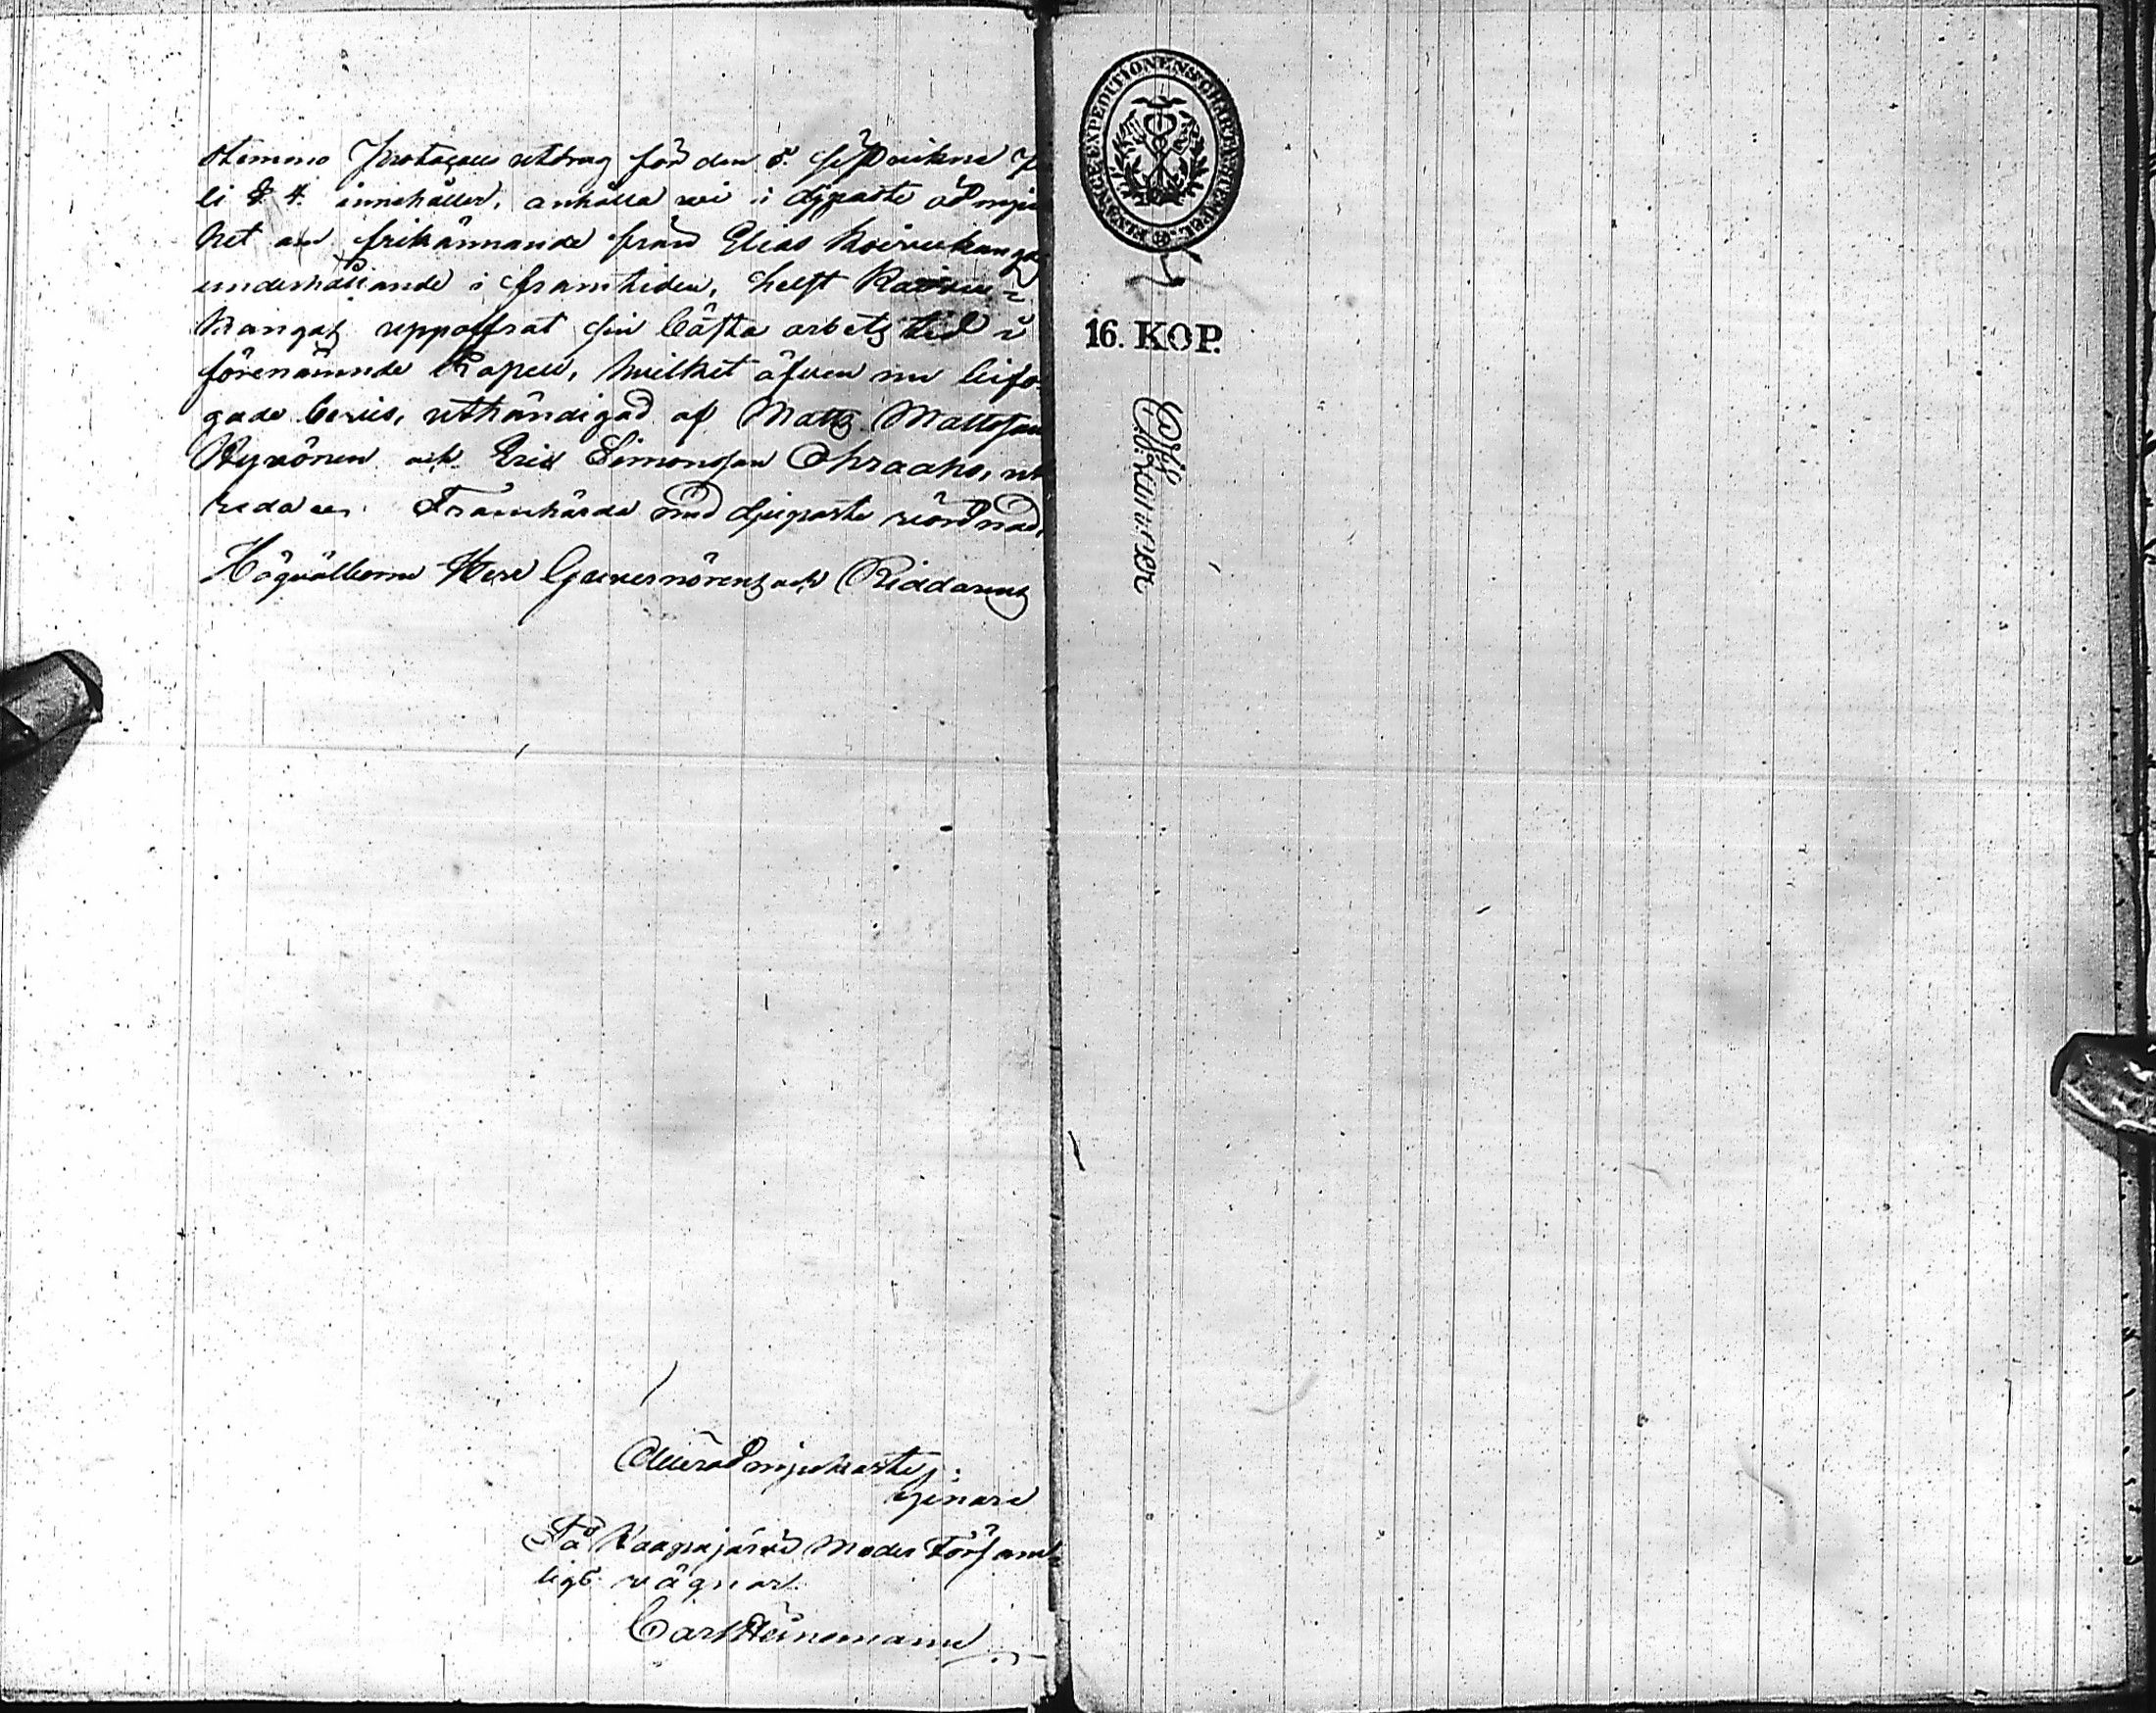 stemmo Protocolls utdrag för den 5. sistvikne Ju
li § 4. innehåller, anhålla wi i djupaste ödmju
het om frikännande från Elias Koirukangas
underhållande i framtiden, helst Koiru=
kangas uppoffrat sin bästa arbets tid i
förenämnde Kapell, hvilket äfven nu bifo-
gade bevis, uthändigad af Matts Mattsson
Hyvönen och Eric Simonsson Ohraaho, ut
reda es. Framhärda med djupaste vördnad,
Högvälborne Herr Guvernörens och Riddarens
Allerödmjukaste
tjenare
På Kaapajärvi Moder Försam=
ligs. vägnar.
Carl Heinemann
FINANCE EXPEDITIONENS CHARTÆ
16. KOP.